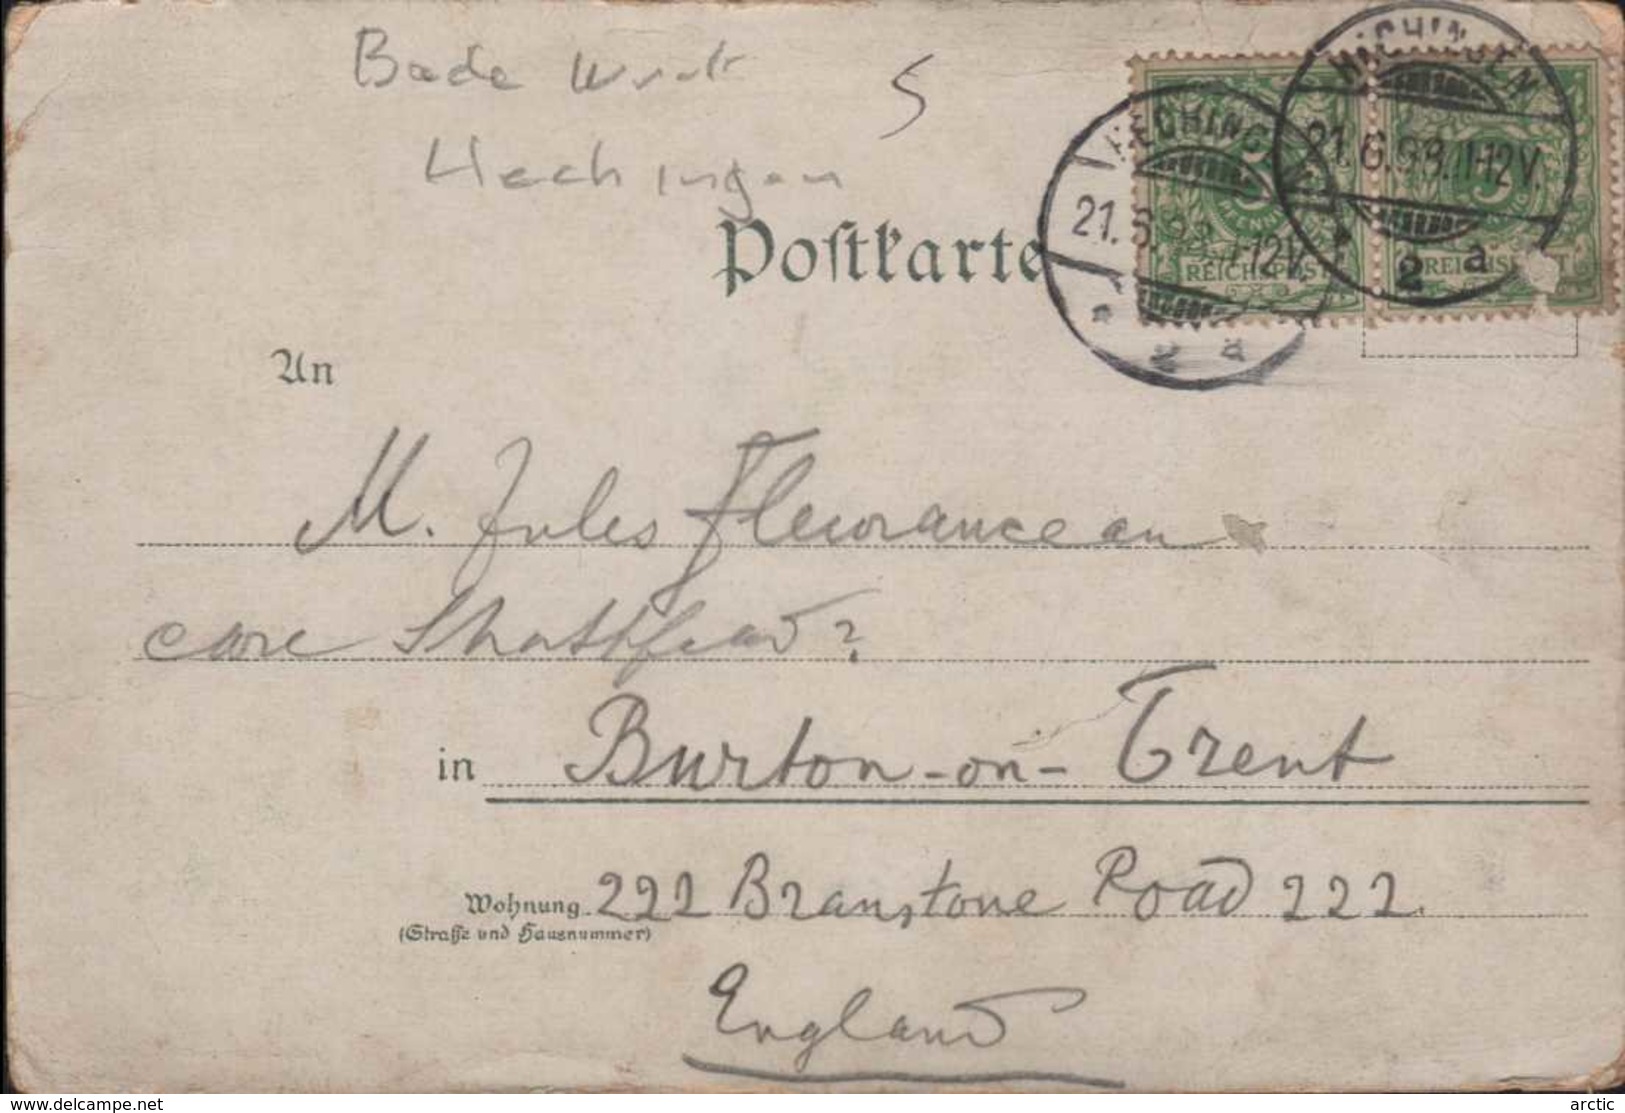 Bade Wurt
S
Hechingen
Postkarte
HECHINGEN
21.6.98.11-12V.
2 a
HECHINGEN
21.6.98.11-12V.
2 a
REICHSPOST
REICHSPOST
An
M. Jules Fleuranceau
care Shottfead?
in Burton-on-Trent
Wohnung 222 Branstone Road 222.
(Straße und Hausnummer)
England
www.delcampe.net
arctic